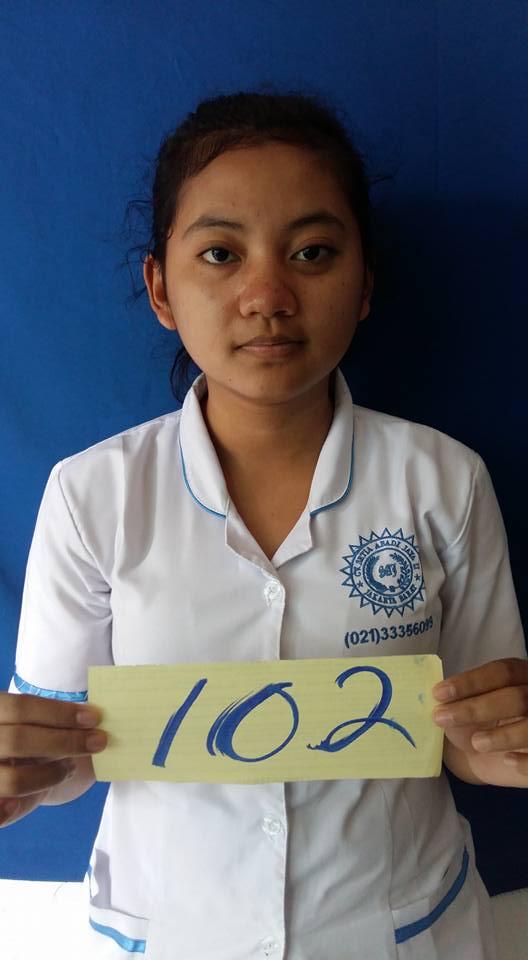 CV. SETIA ABADI JAYA II
SAJ
JAKARTA BARAT
(021)33356099
102